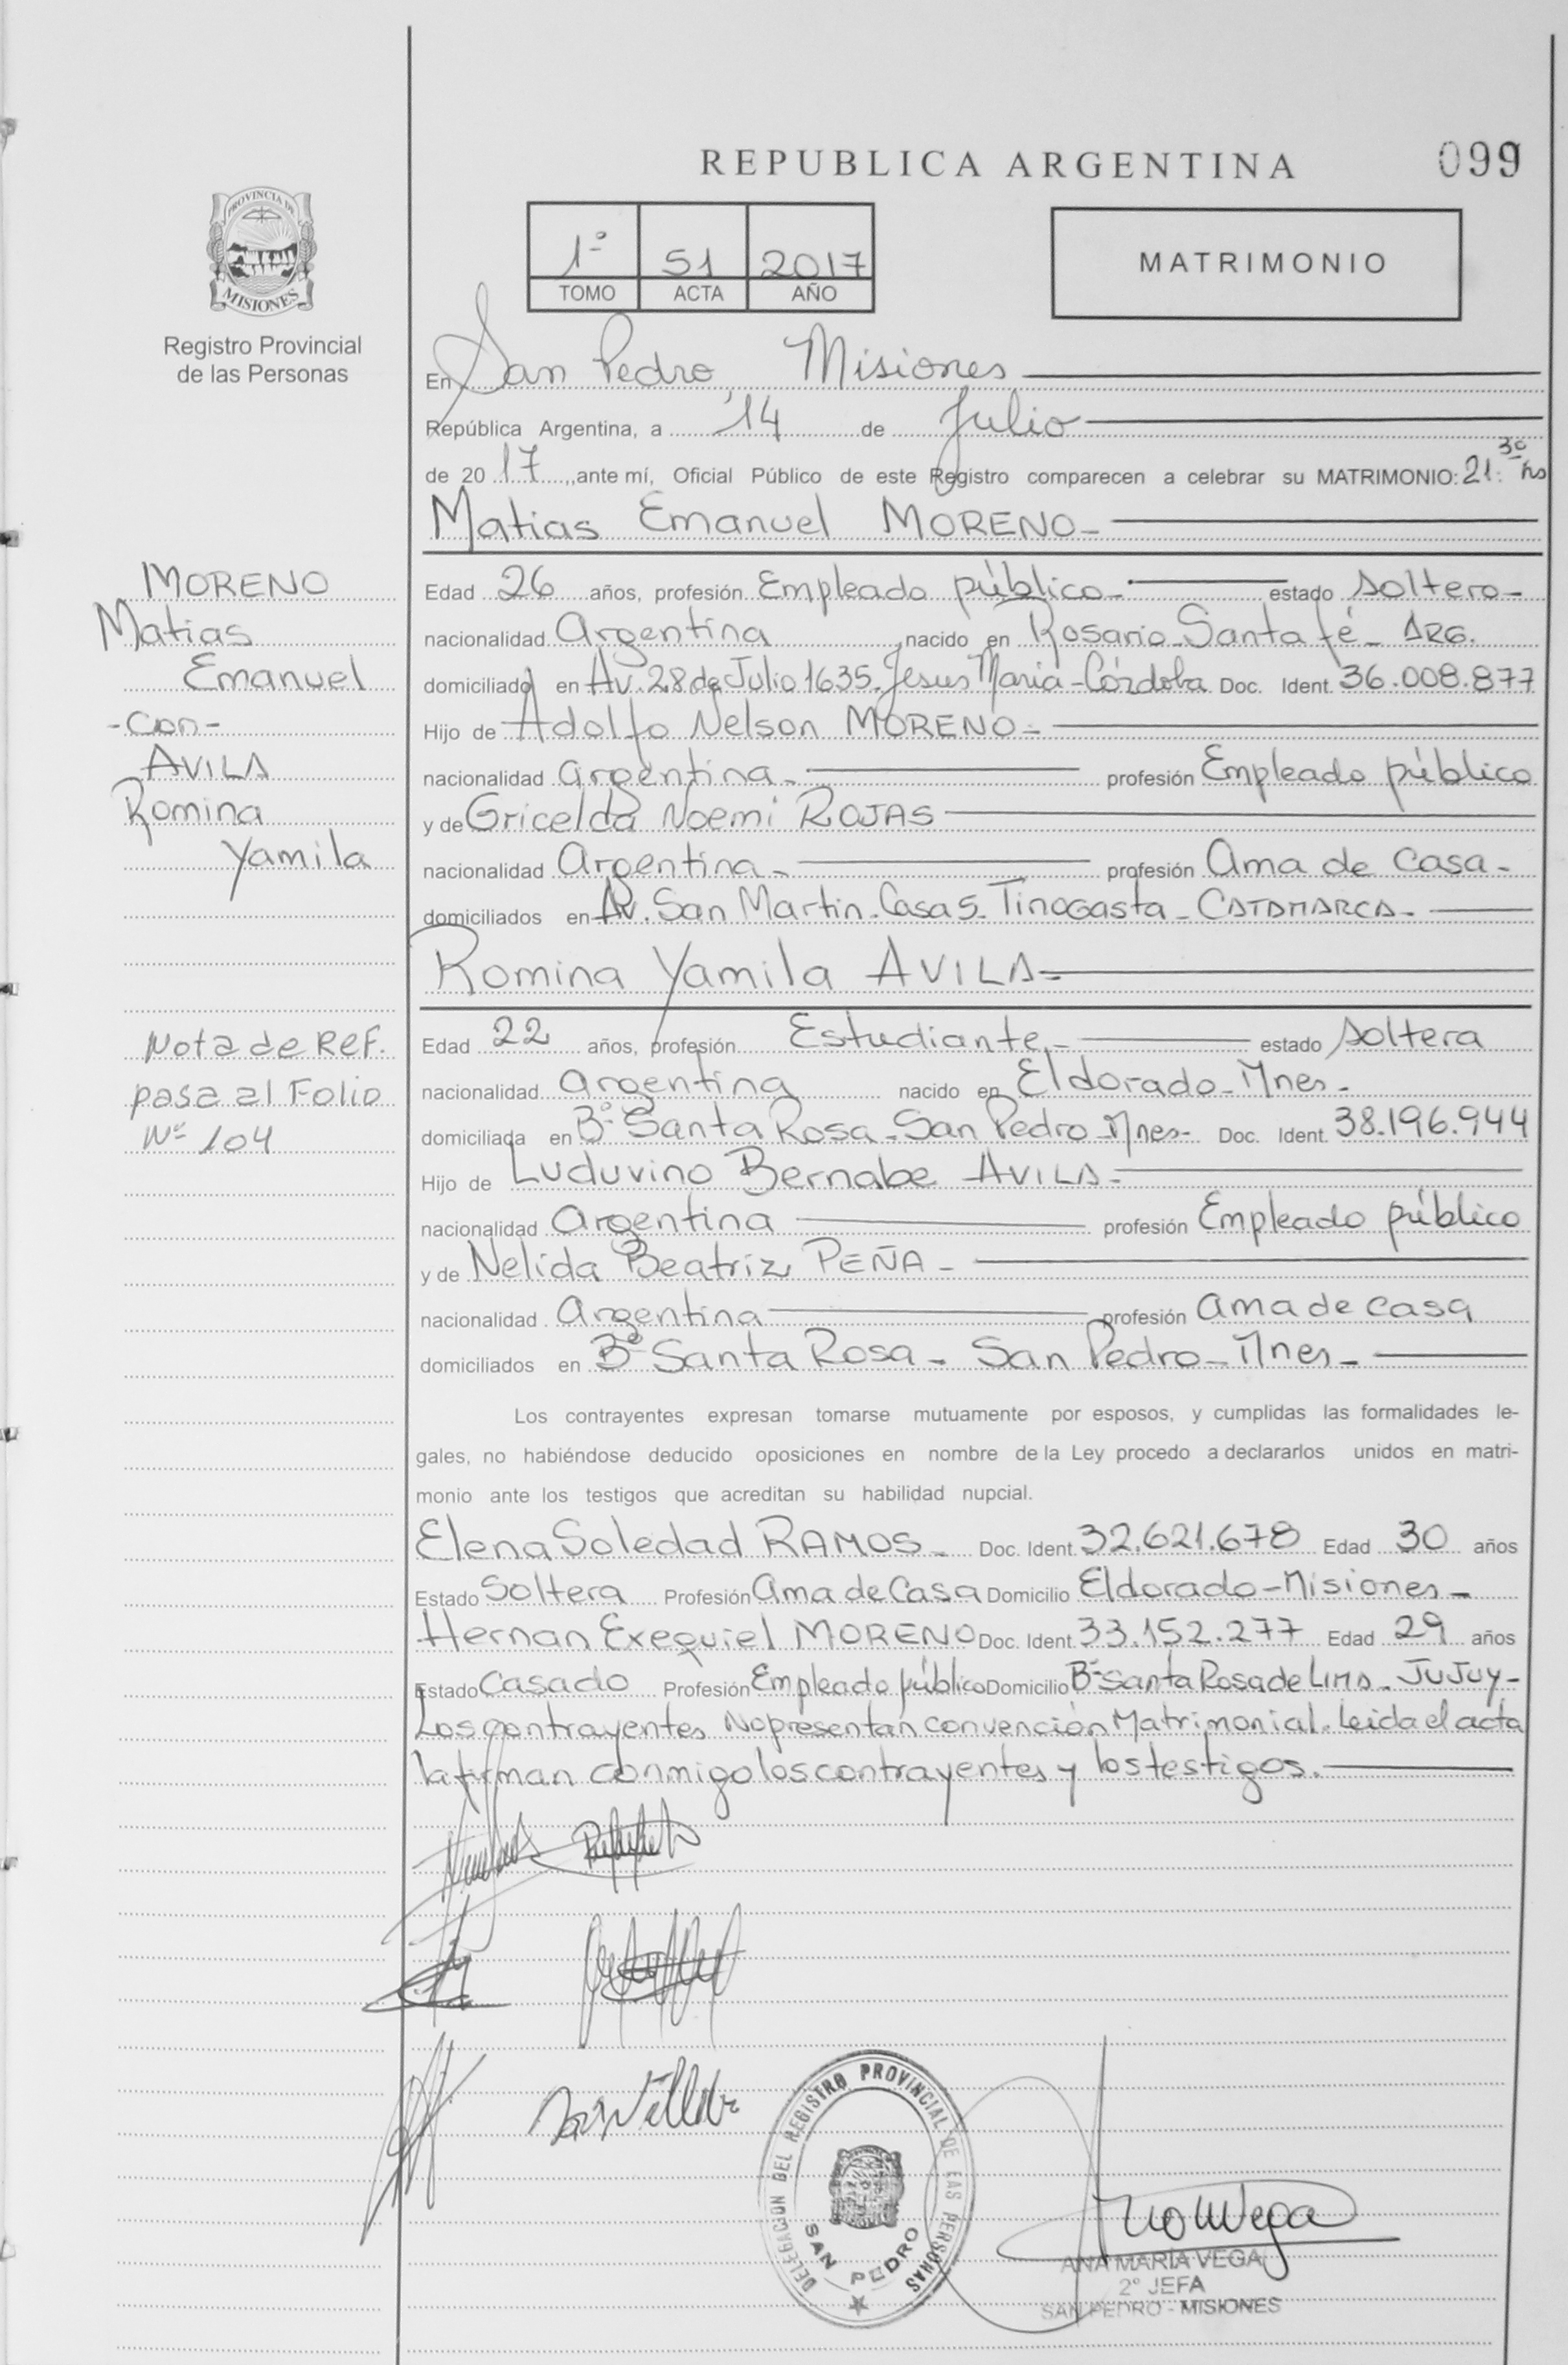 REPUBLICA ARGENTINA
099
PROVINCIA DE
MISIONES
Registro Provincial
de las Personas
1º 51 2017
TOMO ACTA AÑO
MATRIMONIO
En San Pedro, Misiones
República Argentina, a 14 de Julio
de 20 17, ante mí, Oficial Público de este Registro comparecen a celebrar su MATRIMONIO: 21:30 hs
Matias Emanuel MORENO-
MORENO
Matias
Emanuel
-con-
AVILA
Romina
Yamila
Nota de Ref.
pasa al Folio
Nº 104
Edad 26 años, profesión Empleado público- estado soltero-
nacionalidad Argentina nacido en Rosario-Santa fé- ARG.
domiciliado en Av. 28 de Julio 1635. Jesus Maria-Córdoba Doc. Ident. 36.008.877
Hijo de Adolfo Nelson MORENO-
nacionalidad argentina- profesión Empleado público
y de Gricelda Noemi ROJAS
nacionalidad Argentina- profesión Ama de casa-
domiciliados en Av. San Martin-Casa 5-Tinogasta-CATAMARCA-
Romina Yamila AVILA-
Edad 22 años, profesión Estudiante- estado soltera
nacionalidad argentina nacido en Eldorado-Mnes-
domiciliada en Bº Santa Rosa-San Pedro-Mnes- Doc. Ident. 38.196.944
Hijo de Luduvino Bernabe AVILA-
nacionalidad Argentina profesión Empleado público
y de Nelida Beatriz PEÑA-
nacionalidad Argentina profesión ama de casa
domiciliados en Bº Santa Rosa- San Pedro-Mnes-
Los contrayentes expresan tomarse mutuamente por esposos, y cumplidas las formalidades le-
gales, no habiéndose deducido oposiciones en nombre de la Ley procedo a declararlos unidos en matri-
monio ante los testigos que acreditan su habilidad nupcial.
Elena Soledad RAMOS- Doc. Ident. 32.621.678 Edad 30 años
Estado Soltera Profesión Ama de Casa Domicilio Eldorado-Misiones-
Hernan Exequiel MORENO Doc. Ident. 33.152.277 Edad 29 años
Estado Casado Profesión Empleado público Domicilio Bº Santa Rosa de Lima-JUJUY-
Los contrayentes No presentan convención Matrimonial. Leida el acta
la firman conmigo los contrayentes y los testigos.
DELEGACION DEL REGISTRO PROVINCIAL DE LAS PERSONAS
SAN PEDRO
ANA MARÍA VEGA
2º JEFA
SAN PEDRO - MISIONES